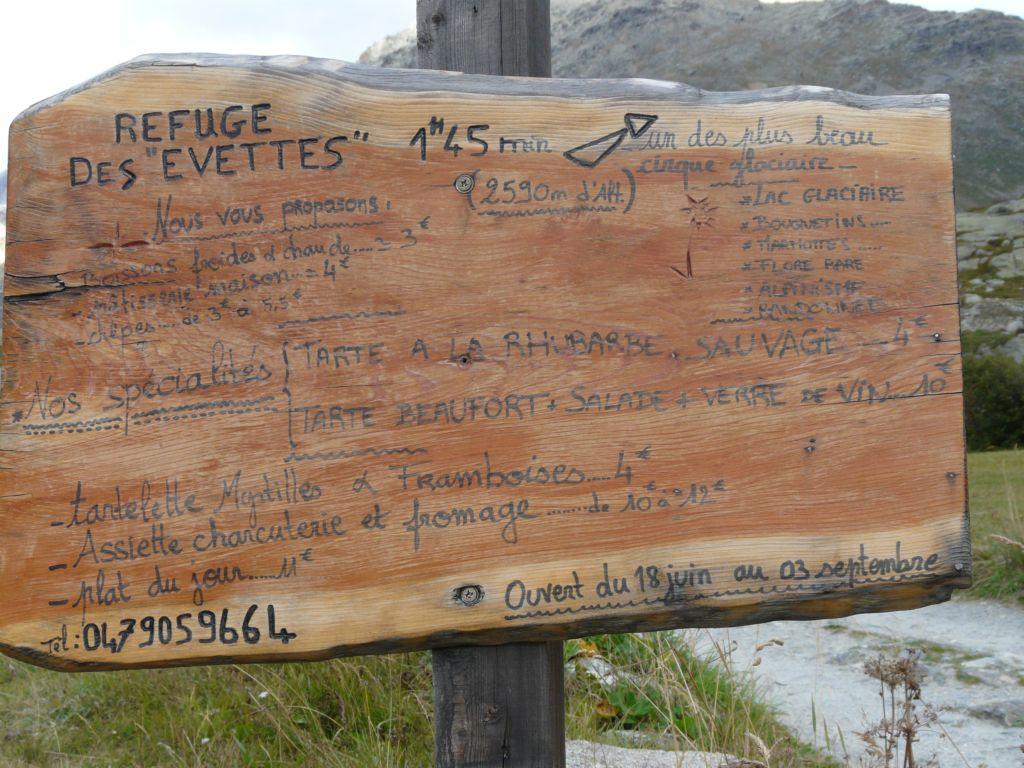 REFUGE
DES "EVETTES"
1H45 min
(2590m d'Alt.)
un des plus beau
cirque glaciaire
* LAC GLACIAIRE
* BOUQUETINS....
* MARMOTTES.....
* FLORE RARE
* ALPINISME
* RANDONNEE
Nous vous proposons:
- Boissons froides & chaude.... = 3€
- pâtisserie maison... = 4€
- crêpes.... de 3€ à 5,5€
* Nos spécialités
TARTE A LA RHUBARBE SAUVAGE ... 4€
TARTE BEAUFORT + SALADE + VERRE DE VIN... 10€
- tartelette Myrtilles & Framboises.... 4€
- Assiette charcuterie et fromage ........ de 10€ à 12€
- plat du jour..... 11€
Tel: 0479059664
Ouvert du 18 juin au 03 septembre